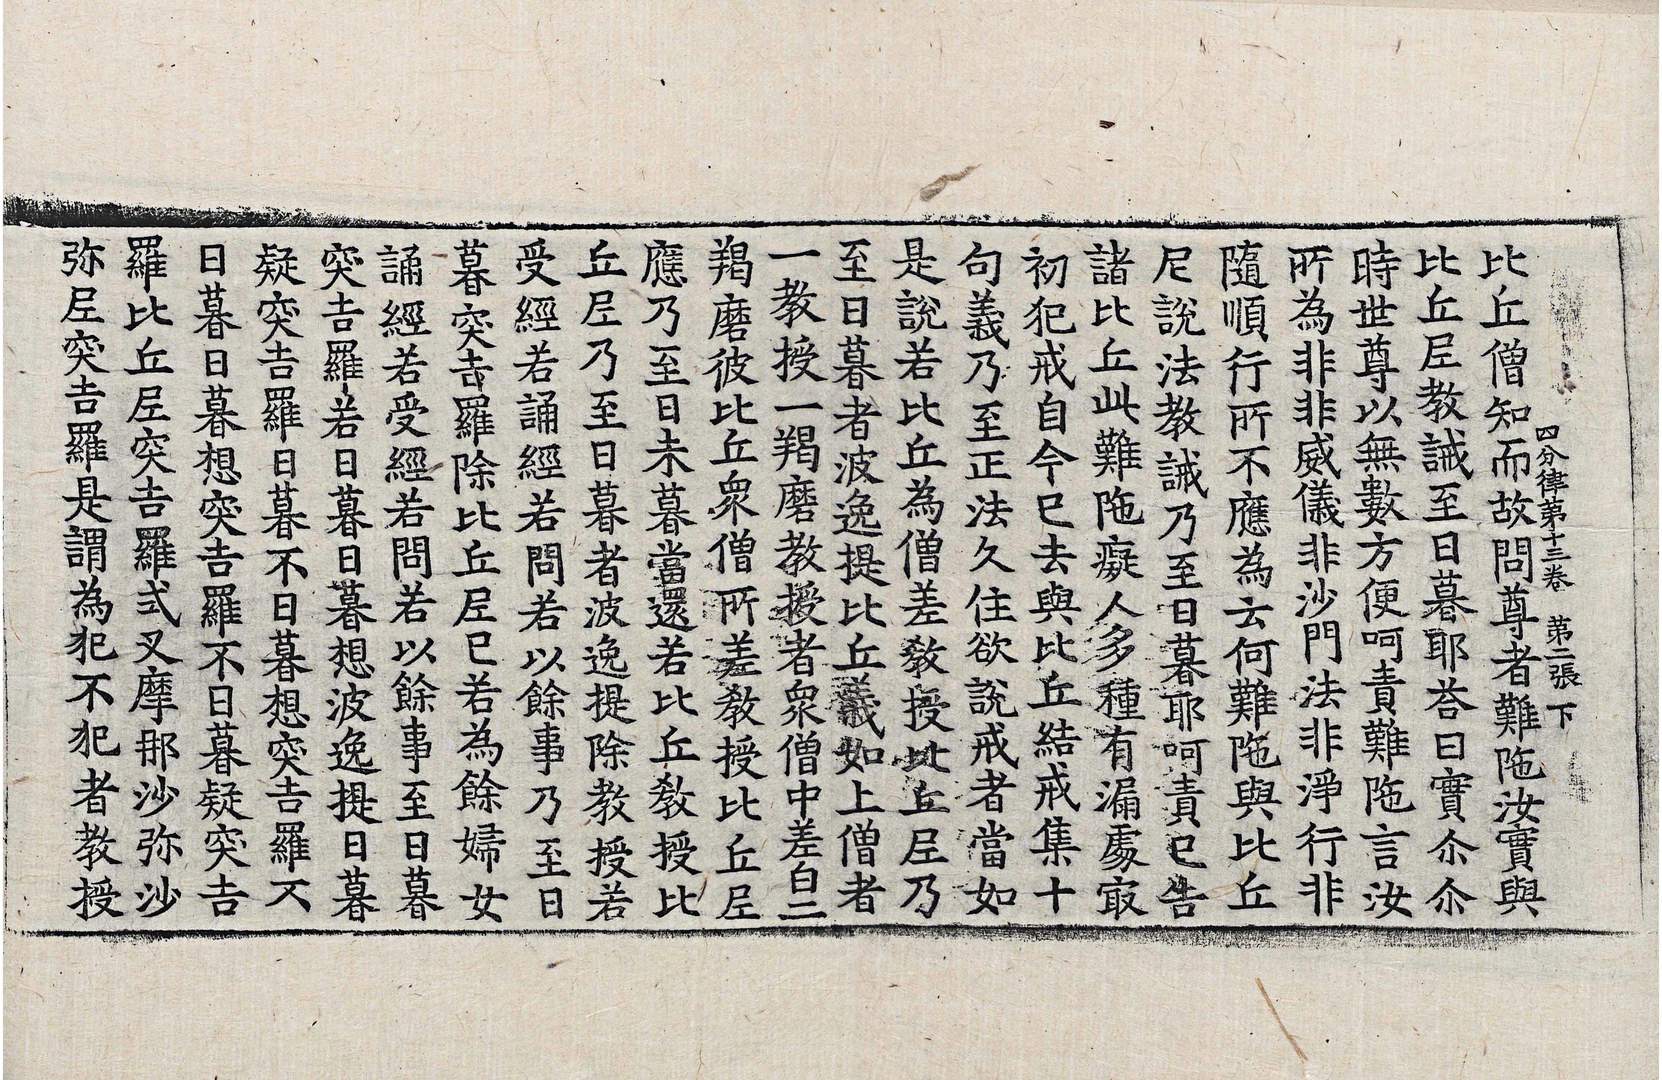 四分律第十三卷 第二張 下
比丘僧知而故問尊者難陁汝實與
比丘尼教誡至日暮耶荅曰實尒尒
時世尊以無數方便呵責難陁言汝
所為非非威儀非沙門法非淨行非
隨順行所不應為云何難陁與比丘
尼說法教誡乃至日暮耶呵責已告
諸比丘此難陁癡人多種有漏處㝡
初犯戒自今已去與比丘結戒集十
句義乃至正法久住欲說戒者當如
是說若比丘為僧差教授比丘尼乃
至日暮者波逸提比丘義如上僧者
一教授一羯磨教授者衆僧中差白二
羯磨彼比丘衆僧所差教授比丘尼
應乃至日未暮當還若比丘教授比
丘尼乃至日暮者波逸提除教授若
受經若誦經若問若以餘事乃至日
暮突吉羅除比丘尼已若為餘婦女
誦經若受經若問若以餘事至日暮
突吉羅若日暮日暮想波逸提日暮
疑突吉羅日暮不日暮想突吉羅不
日暮日暮想突吉羅不日暮疑突吉
羅比丘尼突吉羅式叉摩那沙弥沙
弥尼突吉羅是謂為犯不犯者教授